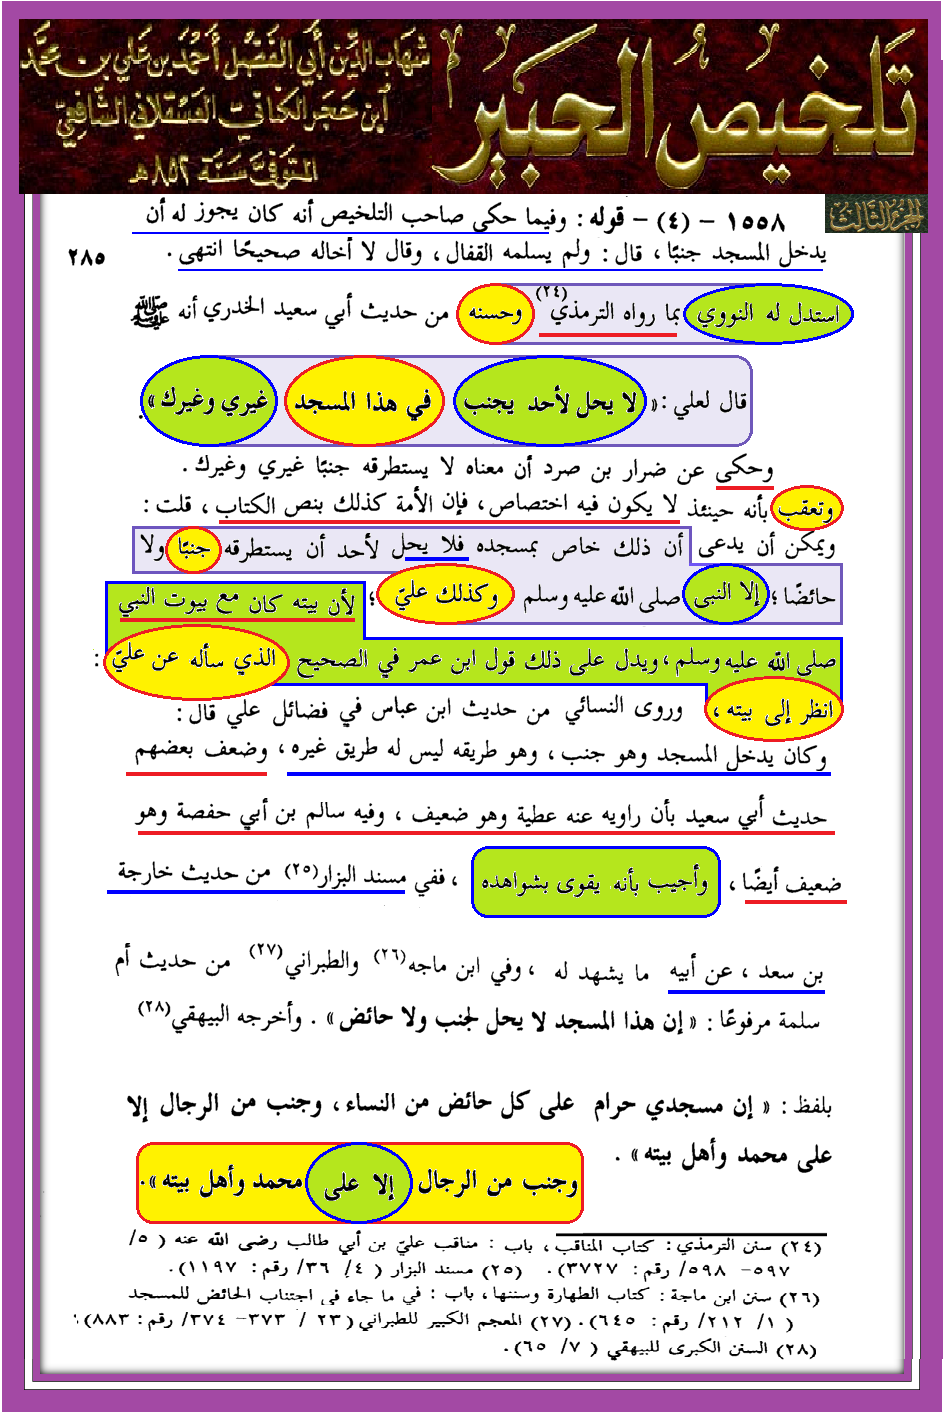 تلخيص الحبير
شهاب الدين أبي الفضل أحمد بن علي بن محمد
ابن حجر الكناني العسقلاني الشافعي
المتوفى سنة ٨٥٢هـ
الجزء الثالث
١٥٥٨ - (٤) - قوله : وفيما حكى صاحب التلخيص أنه كان يجوز له أن
يدخل المسجد جنبًا ، قال : ولم يسلمه القفال ، وقال لا أخاله صحيحًا انتهى .
٢٨٥
استدل له النووي بما رواه الترمذي (٢٤) وحسنه من حديث أبي سعيد الخدري أنه ﷺ
قال لعلي : « لا يحل لأحد يجنب في هذا المسجد غيري وغيرك » .
وحكى عن ضرار بن صرد أن معناه لا يستطرقه جنبًا غيري وغيرك .
وتعقب بأنه حينئذ لا يكون فيه اختصاص ، فإن الأمة كذلك بنص الكتاب ، قلت :
ويمكن أن يدعى أن ذلك خاص بمسجده فلا يحل لأحد أن يستطرقه جنبًا ولا
حائضًا ؛ إلا النبى صلى الله عليه وسلم وكذلك عليّ ؛ لأن بيته كان مع بيوت النبي
صلى الله عليه وسلم ، ويدل على ذلك قول ابن عمر في الصحيح الذي سأله عن عليّ :
انظر إلى بيته ، وروى النسائي من حديث ابن عباس في فضائل علي قال :
وكان يدخل المسجد وهو جنب ، وهو طريقه ليس له طريق غيره ، وضعف بعضهم
حديث أبي سعيد بأن راويه عنه عطية وهو ضعيف ، وفيه سالم بن أبي حفصة وهو
ضعيف أيضًا ، وأجيب بأنه يقوى بشواهده ، ففي مسند البزار (٢٥) من حديث خارجة
بن سعد ، عن أبيه ما يشهد له ، وفي ابن ماجه (٢٦) والطبراني (٢٧) من حديث أم
سلمة مرفوعًا : « إن هذا المسجد لا يحل لجنب ولا حائض » . وأخرجه البيهقي (٢٨)
بلفظ : « إن مسجدي حرام على كل حائض من النساء ، وجنب من الرجال إلا
على محمد وأهل بيته » .
وجنب من الرجال إلا على محمد وأهل بيته » .
(٢٤) سنن الترمذي : كتاب المناقب ، باب : مناقب عليّ بن أبي طالب رضى الله عنه ( ٥/
٥٩٧- ٥٩٨/ رقم : ٣٧٢٧) . (٢٥) مسند البزار ( ٤/ ٣٦/ رقم : ١١٩٧) .
(٢٦) سنن ابن ماجة : كتاب الطهارة وسننها ، باب : في ما جاء فى اجتناب الحائض للمسجد
( ١/ ٢١٢/ رقم : ٦٤٥) . (٢٧) المعجم الكبير للطبراني ( ٢٣ / ٣٧٣- ٣٧٤/ رقم : ٨٨٣) .
(٢٨) السنن الكبرى للبيهقي ( ٧/ ٦٥) .